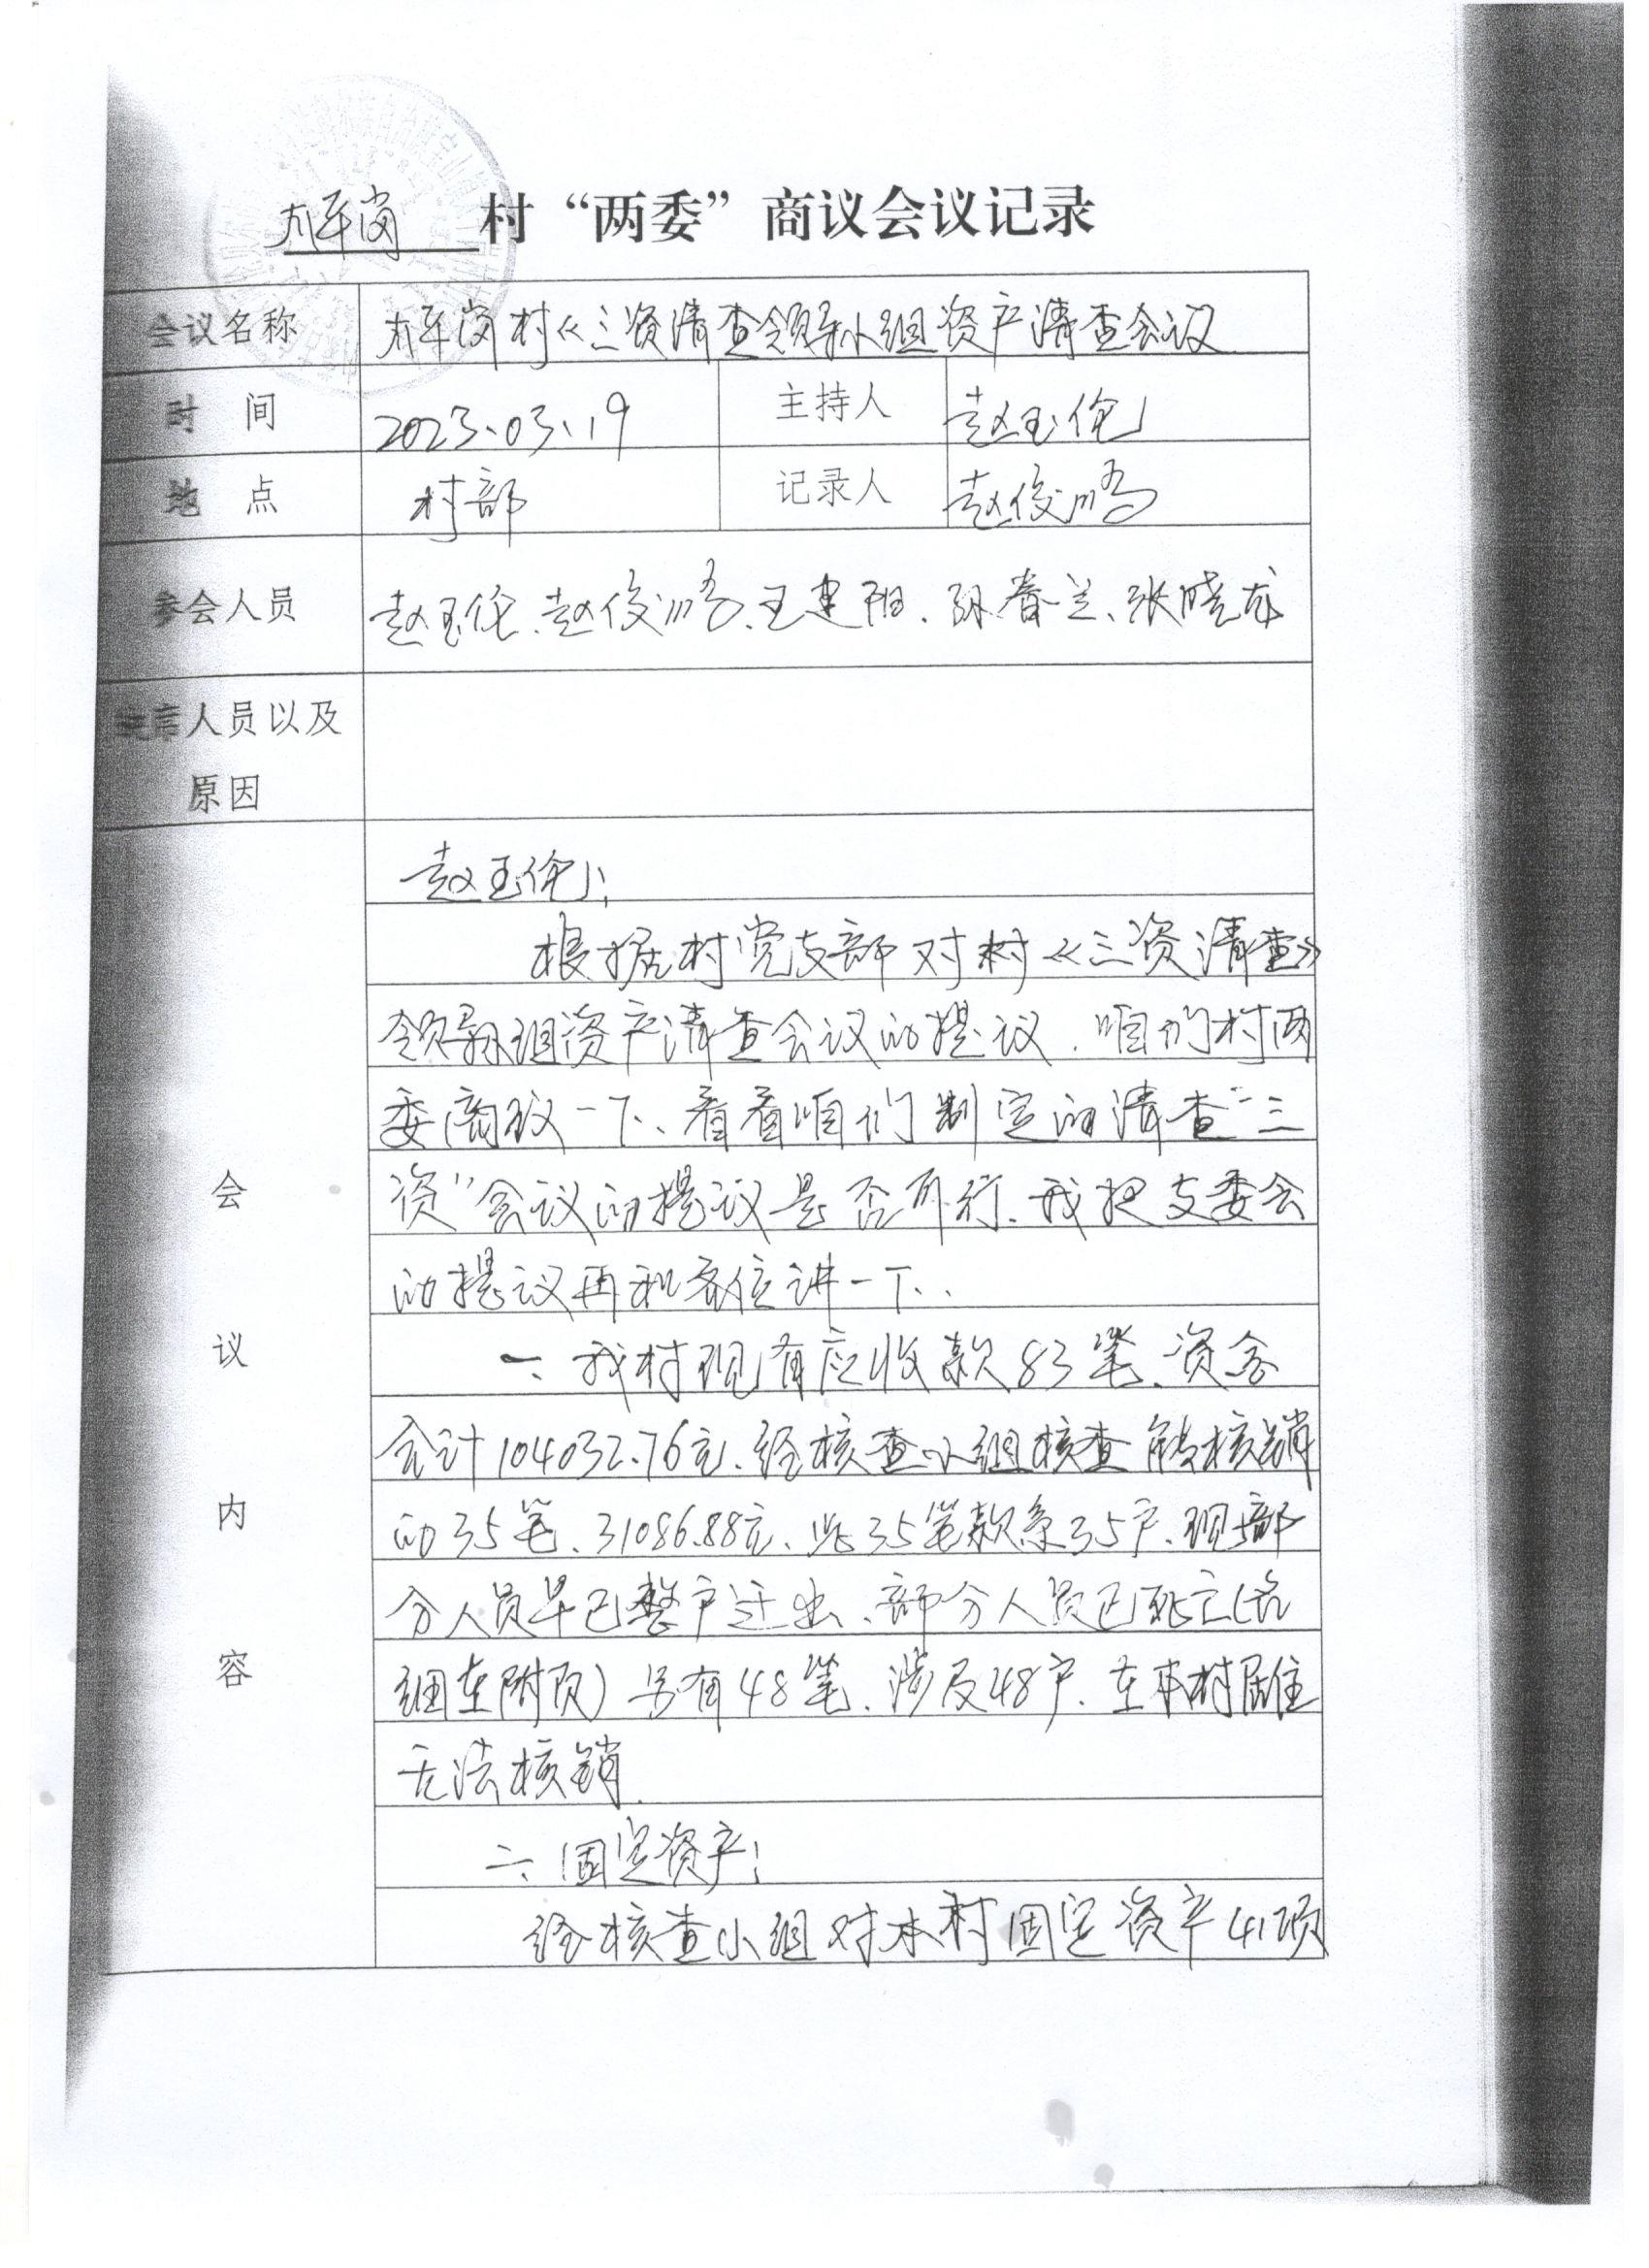 太平岗 村“两委”商议会议记录
会议名称 太平岗村《三资清查领导小组资产清查会议
时 间 2023.03.19 主持人 赵玉伦
地 点 村部 记录人 赵俊鹏
参会人员 赵玉伦、赵俊鹏、王建阳、孙春兰、张晓龙
席人员以及
原因
会议内容
赵玉伦:
根据村党支部对村《三资清查》
领导小组资产清查会议的提议、咱们村两
委商议一下、看看咱们制定的清查“三
资”会议的提议是否可行、我把支委会
的提议再和各位讲一下、
一、我村现有应收款83笔、资金
合计104032.76元、经核查小组核查能够核销
的35笔、31086.88元、此35笔款条35户、现部
分人员早已整户迁出、部分人员已死亡(详
细在附页)另有48笔、涉及48户、在本村居住
无法核销.
二、固定资产:
经核查小组对本村固定资产41项